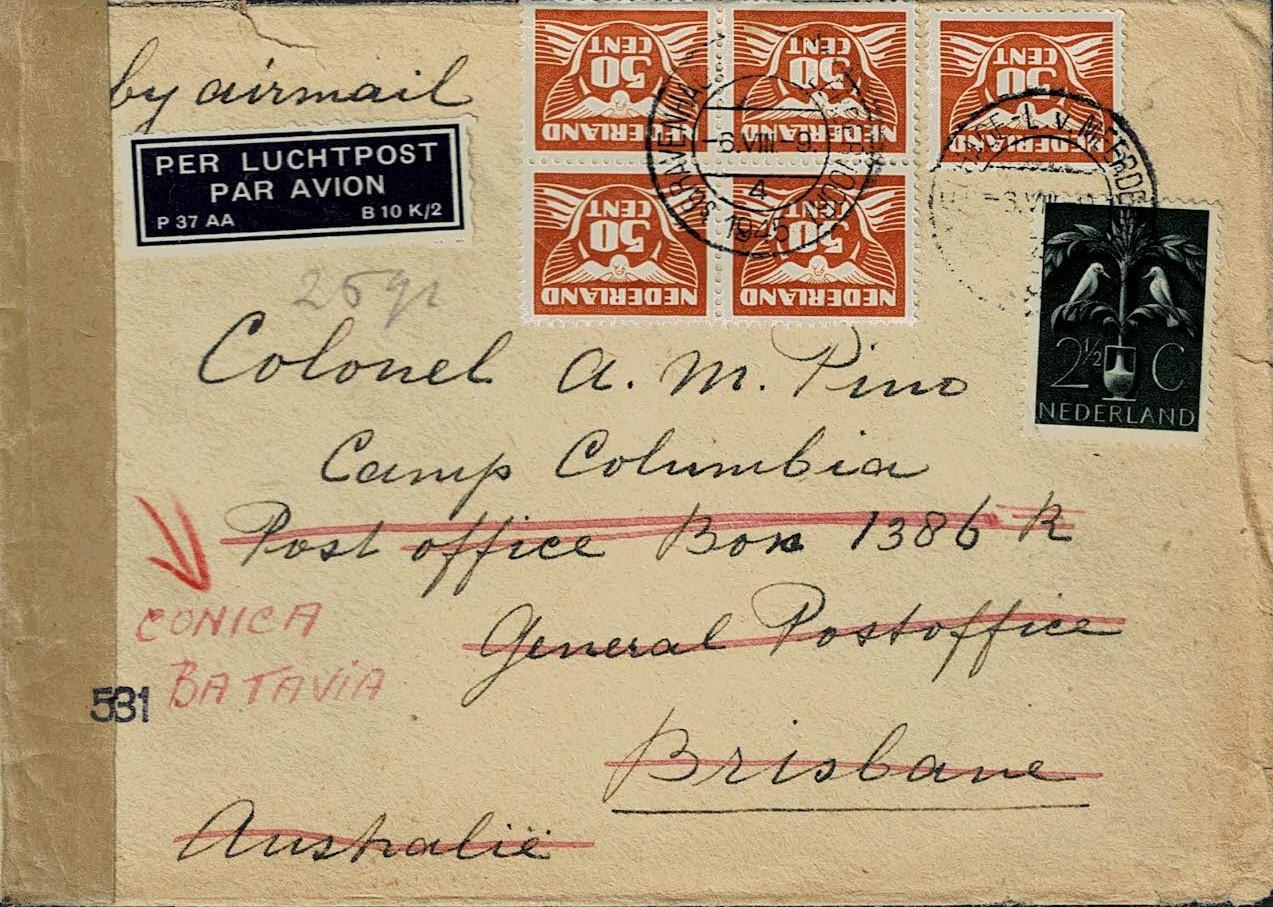 by airmail
PER LUCHTPOST
PAR AVION
P 37 AA B 10 K/2
50 CENT
NEDERLAND
50 CENT
NEDERLAND
50 CENT
NEDERLAND
50 CENT
NEDERLAND
50 CENT
NEDERLAND
-6.VIII-9.
4
1945
2½ C
NEDERLAND
25 gr
Colonel A. M. Pino
Camp Columbia
Post office Box 1386 R
General Postoffice
Brisbane
Australië
CONICA
BATAVIA
531